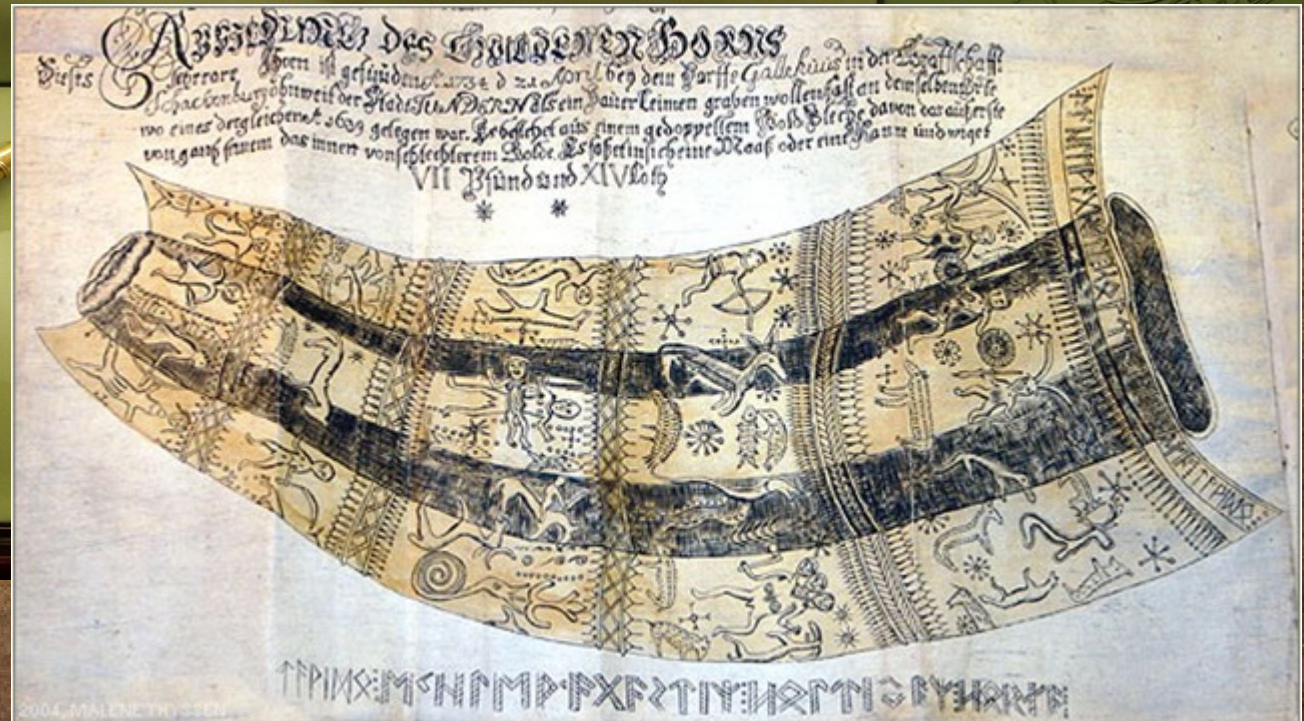 ABBILDUNG DES GULDENEN HORNS
Dieses Horn ist gefunden A. 1734 d 21 April bey dem Dorffe Gallehuus in der Graffschafft
Schackenburg ohnweit der Stadt TUNDERN als ein Bauer Leimen graben wollen fast an demselben Orte
wo eines dergleichen A. 1639 gelegen war. Es bestehet aus einem gedoppeltem Gold Bleche davon das äuserste
von gantz feinem das innere von schlechterem Golde. Es fasset in sich eine Maaß oder eine Kanne und wiget
VII Pfund und XIV Loth
ᛏᚨᚹᛁᛞᛟ⁝ᛖᚲᚺᛚᛖᚹᚨᚷᚨᛊᛏᛁᛉ⁝ᚺᛟᛚᛏᛁ
2004, MALENE THYSSEN